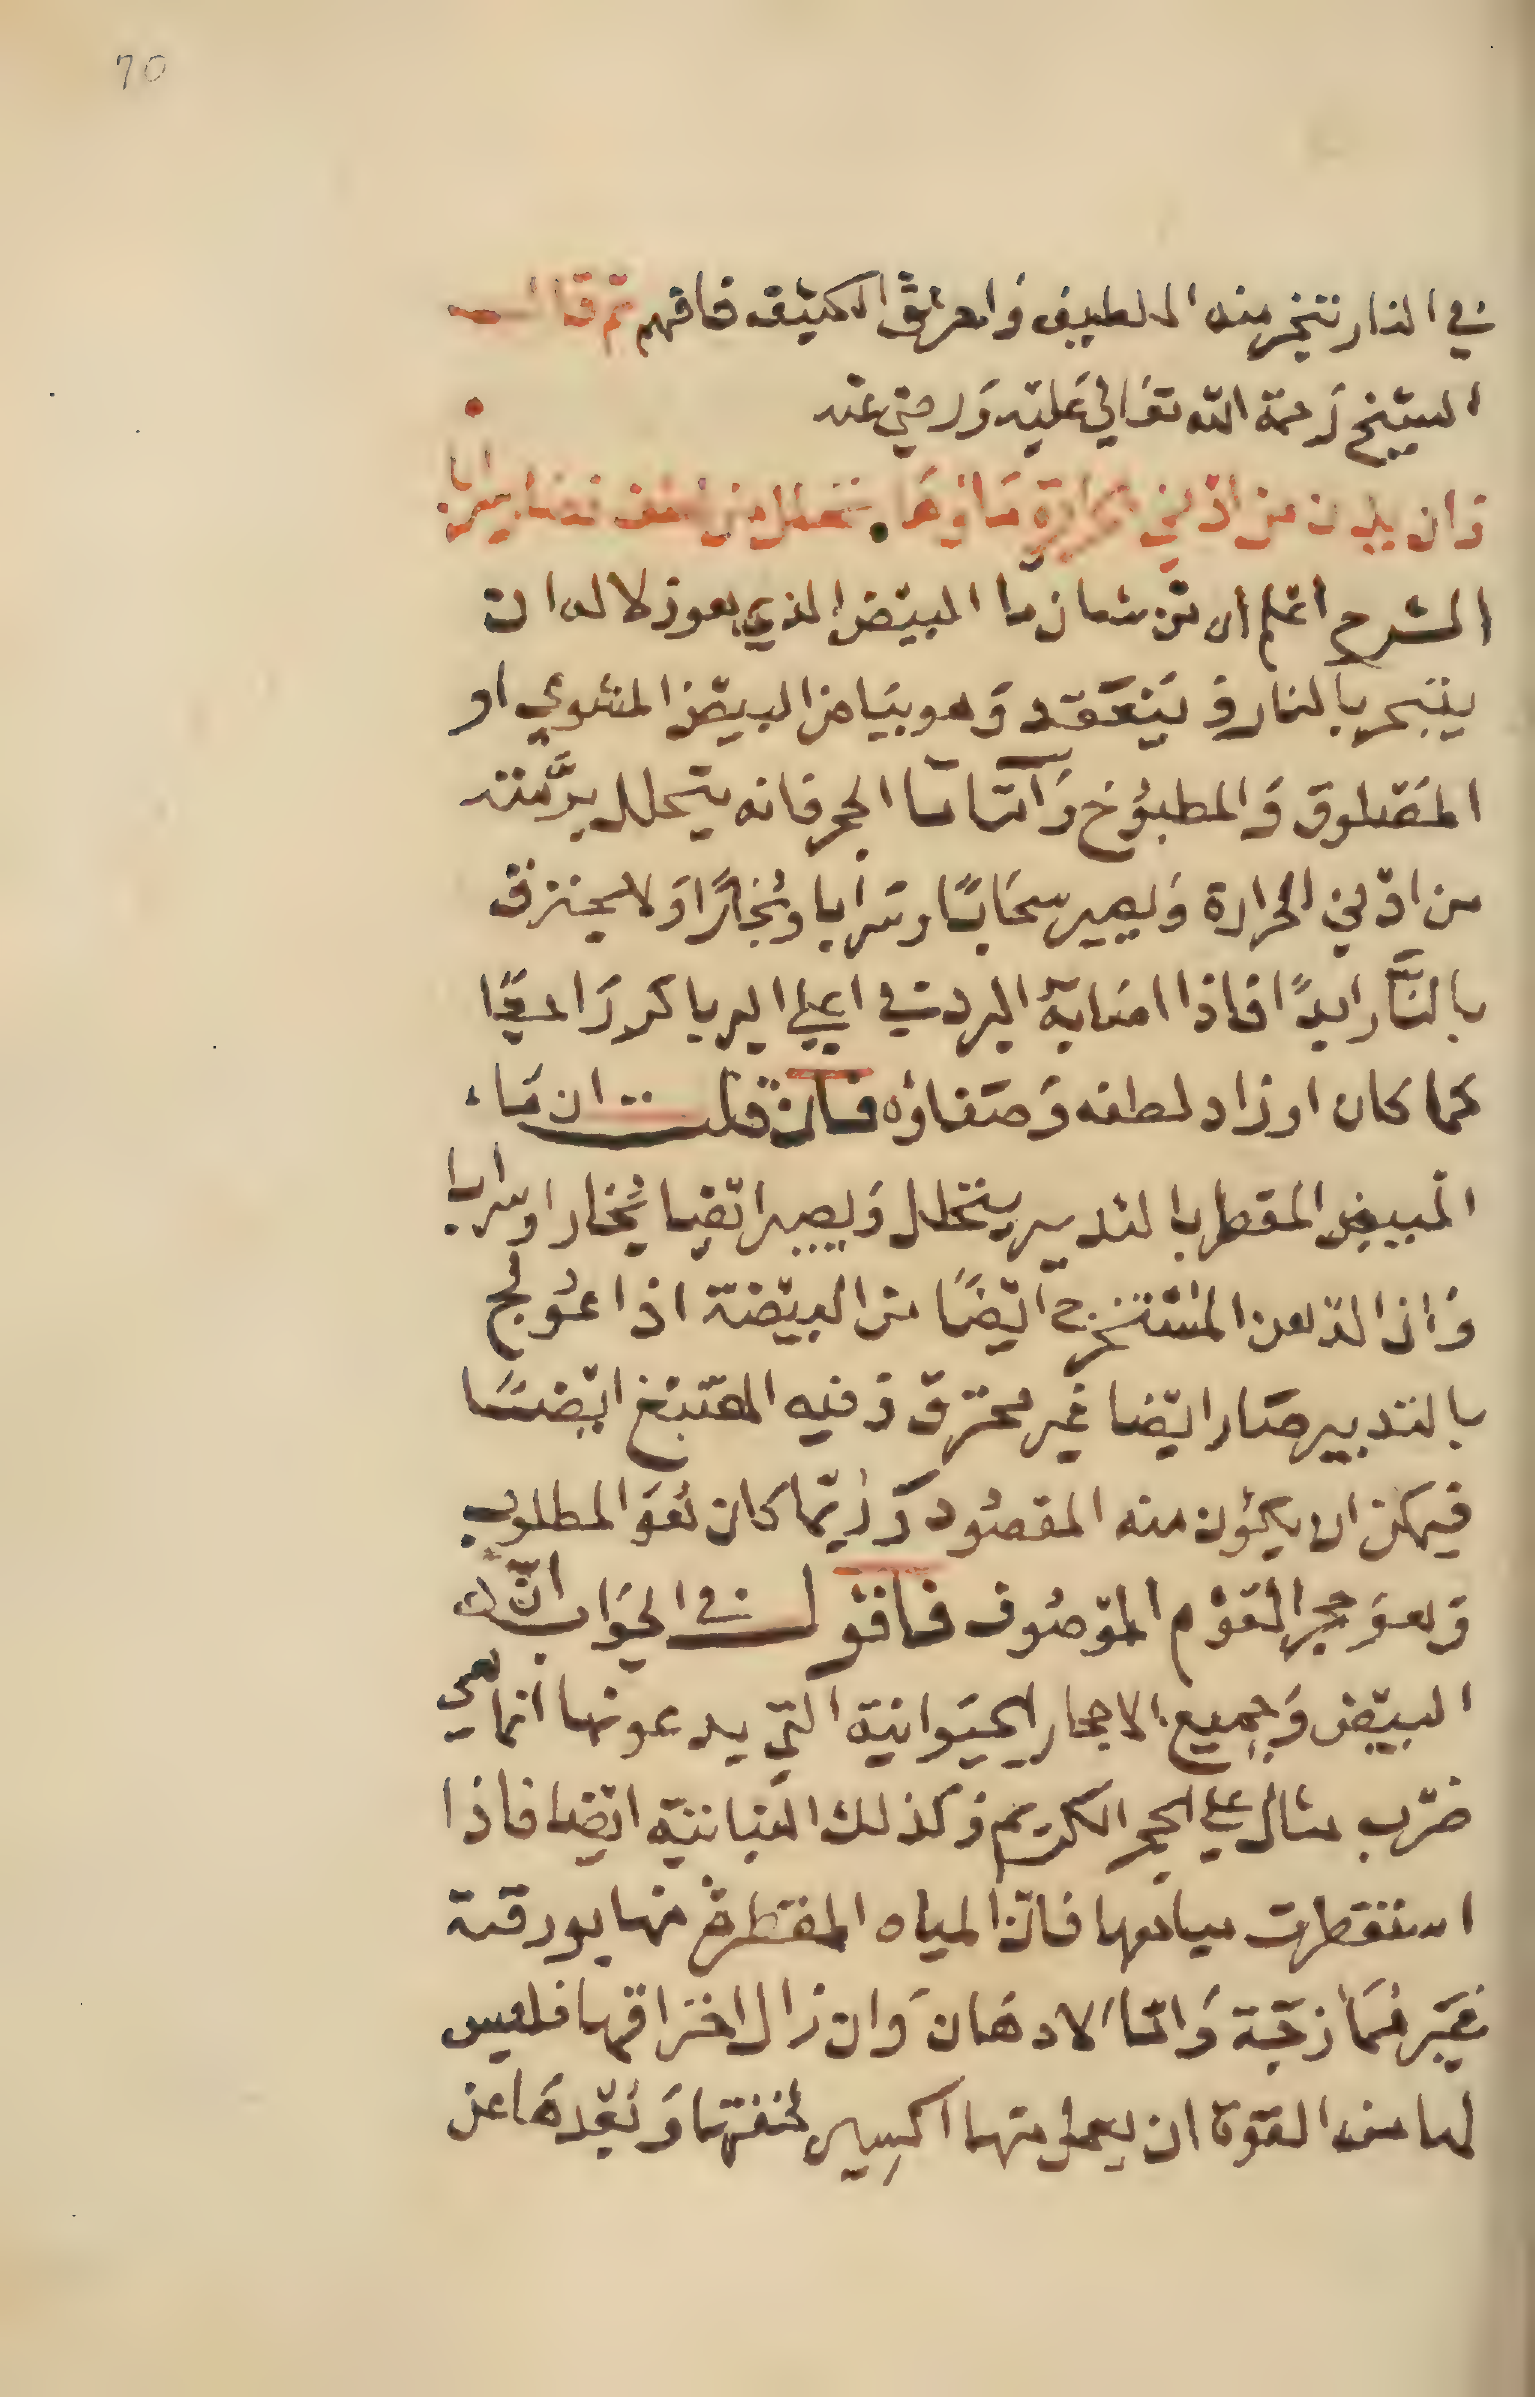 70
في النار تبخر منه اللطيف واحرق الكثيف فافهم ثم قال
الشيخ رحمة الله تعالي عليه ورضي عنه
وان يدن من ادني حرارة ماوها تحلل من لطف فصار سرابا
الشرح اعلم ان من شان ما البيض الذي هو زلاله ان
ينتحر بالنار وينعقد وهو بياض البيض المشوي او
المقلوق والمطبوخ واما ما الحجر فانه يتحلل برمته
من ادني الحرارة ويصير سحابا وسرابا وبخارا ولا يحترق
بالنار ابدا فاذا اصابه البرد في اعلي الـ كر راجعا
كما كان او زاد لطفه وصفاؤه فان قلت ان ماء
البيض المقطر بالتدبير يتحلل ويصير ايضا بخارا وسرابا
واذا الدهن المستخرج ايضا من البيضة اذا عولج
بالتدبير صار ايضا غير محترق وفيه الصبغ ايضا
فيمكن ان يكون منه المقصود وربما كان هو المطلوب
وهو حجر القوم الموصوف فاقول في الجواب ان
البيض وجميع الاحجار الحيوانية التي يدعونها انما هي
ضرب مثال علي الحجر الكريم وكذلك النباتية ايضا فاذا
استقطرت مياهها فان المياه المقطرة منها بورقية
غير ممازجة واما الادهان وان زال احتراقها فليس
لها من القوة ان يعمل منها اكسير لخفتها وبعدها عن